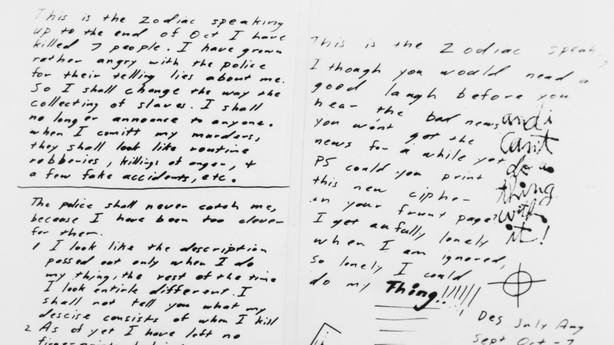 This is the Zodiac speaking
up to the end of Oct I have
killed 7 people. I have grown
rather angry with the police
for their telling lies about me.
So I shall change the way the
collecting of slaves. I shall
no longer announce to anyone.
when I comitt my murders,
they shall look like routine
robberies, killings of anger, +
a few fake accidents, etc.
The police shall never catch me,
because I have been too clever
for them.
1 I look like the description
passed out only when I do
my thing, the rest of the time
I look entirle different. I
shall not tell you what my
descise consists of when I kill
2 As of yet I have left no
This is the Zodiac speak
I though you would need a
good laugh before you
hear the bad news
you won't get the
news for a while yet
PS could you print
this new cipher
in your frunt page?
I get awfully lonely
when I am ignored,
So lonely I could
do my Thing!!!!!!
and i
cant
do a
thing
with
it!
Des July Aug
Sept Oct = 7